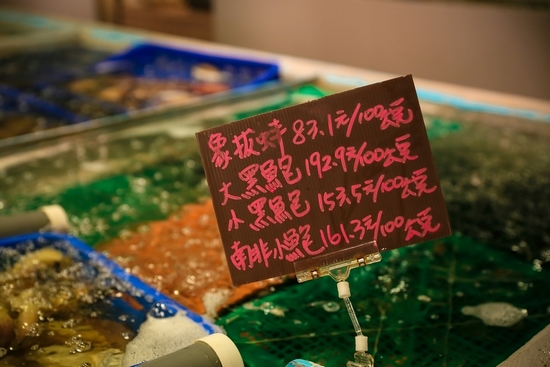 象拔蚌83.1元/100公克
大黑鮑192.9元/100公克
小黑鮑153.5元/100公克
南非小鮑161.3元/100公克